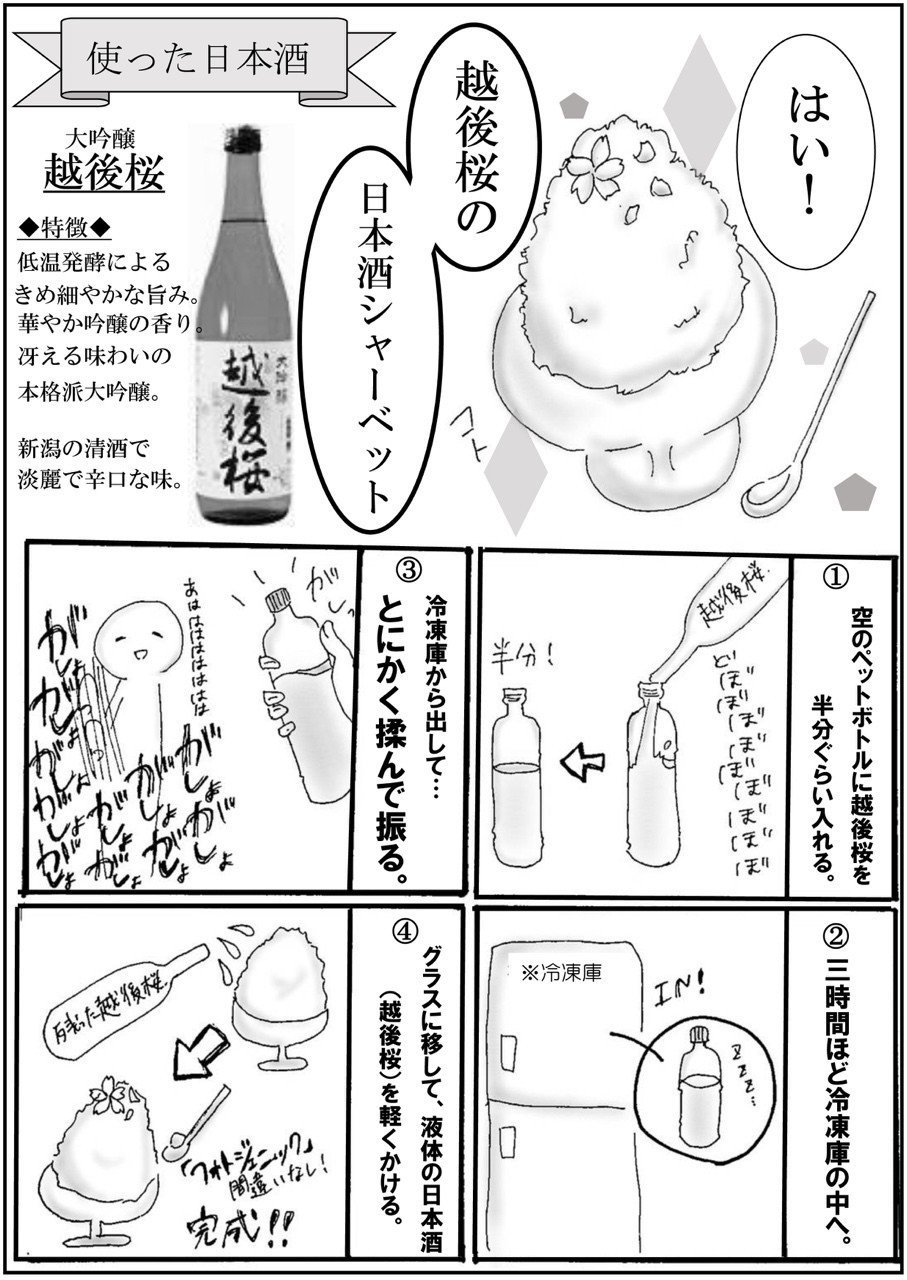 はい！
越後桜の
日本酒シャーベット
コトッ
使った日本酒
大吟醸
越後桜
◆特徴◆
低温発酵による
きめ細やかな旨み。
華やか吟醸の香り。
冴える味わいの
本格派大吟醸。
新潟の清酒で
淡麗で辛口な味。
大吟醸
越後桜
①
空のペットボトルに越後桜を
半分ぐらい入れる。
越後桜
どぼぼぼぼぼぼぼぼ
半分！
②
三時間ほど冷凍庫の中へ。
※冷凍庫
IN!
zzz…
③
冷凍庫から出して…
とにかく揉んで振る。
がしっ
あははははははは
がしょ
がしょ
がしょ
がしょ
がしょ
がしょ
がしょ
がしょ
がしょ
がしょ
がしょ
④
グラスに移して、液体の日本酒
（越後桜）を軽くかける。
残った越後桜
「フォトジェニック」
間違いなし！
完成!!